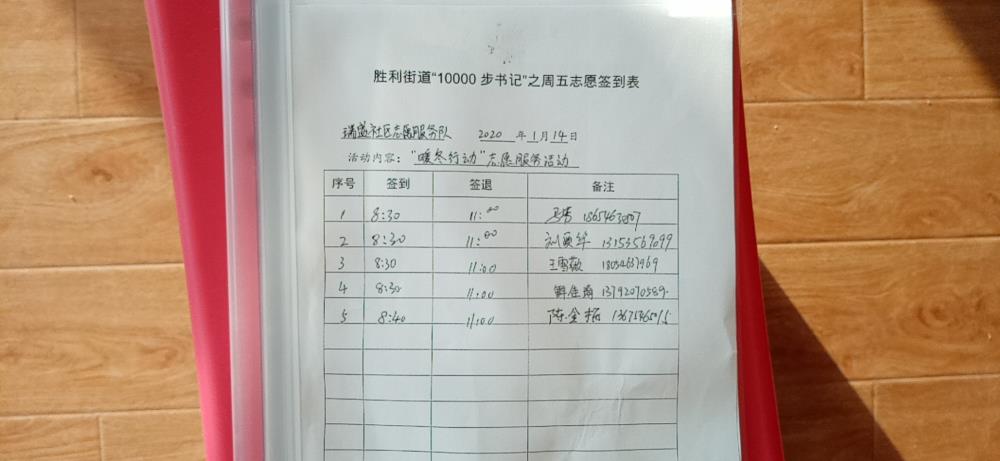 胜利街道“10000 步书记”之周五志愿签到表
瑞盛社区志愿服务队 2020 年 1 月 14 日
活动内容：“暖冬行动”志愿服务活动
序号 签到 签退 备注
1 8:30 11:00
2 8:30 11:00 13153569099
3 8:30 11:00 王雪薇
4 8:30 11:00 13792070589
5 8:40 11:00 陈金